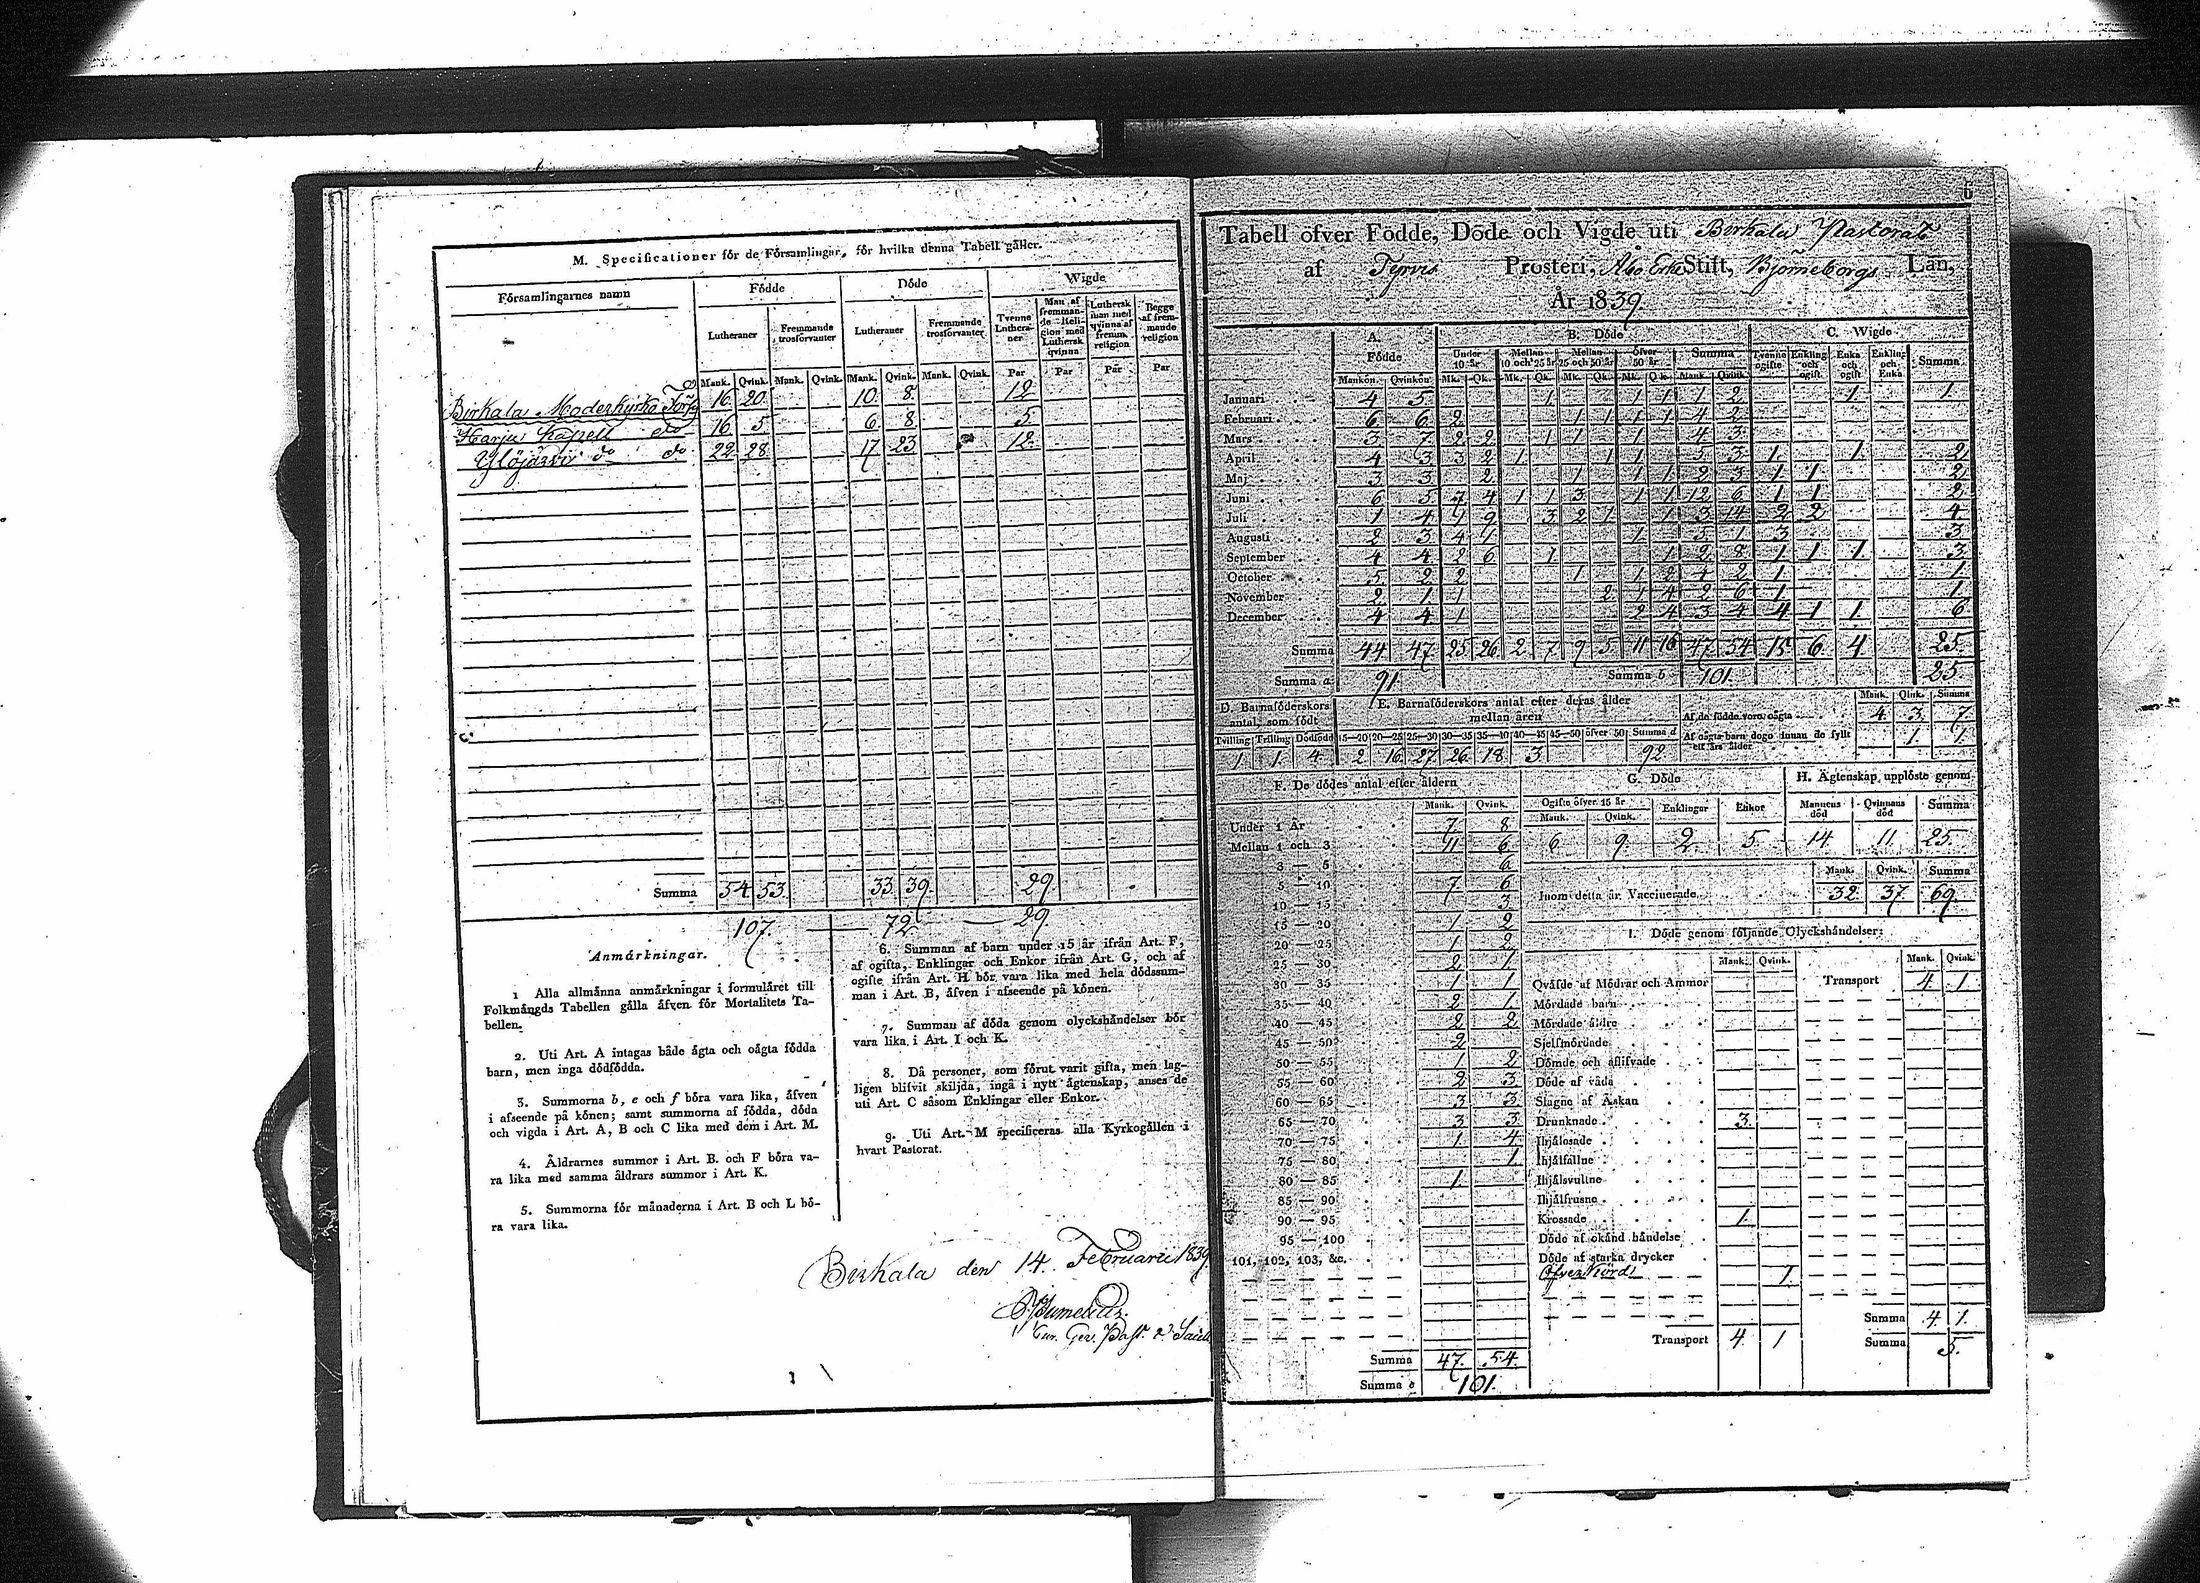 M. Specificationer för de Församlingar, för hvilka denna Tabell gäller.
Församlingarnes namn
Födde
Döde
Wigde
Lutheraner
Fremmande trosförvanter
Lutheraner
Fremmande trosförvanter
Tvenne Lutheraner
Man af fremmande Religion med Luthersk qvinna
Luthersk man med qvinna af fremm. religion
Begge af fremmande religion
Mank. Qvink. Mank. Qvink. Mank. Qvink. Mank. Qvink. Par Par Par Par
Birkala Moderkyrko Förs. 16 20 10 8 12
Harju Kapell do 16 5 6 8 5
Ylöjärvi do do 22 28 17 23 12
Summa 54 53 33 39 29
107 — 72 — 29
Anmärkningar.
1 Alla allmänna anmärkningar i formuläret till
Folkmängds Tabellen gälla äfven för Mortalitets Ta-
bellen.
2. Uti Art. A intagas både ägta och oägta födda
barn, men inga dödfödda.
3. Summorna b, e och f böra vara lika, äfven
i afseende på könen; samt summorna af födda, döda
och vigda i Art. A, B och C lika med dem i Art. M.
4. Åldrarnes summor i Art. B. och F böra va-
ra lika med samma åldrars summor i Art. K.
5. Summorna för månaderna i Art. B och L bö-
ra vara lika.
6. Summan af barn under 15 år ifrån Art. F,
af ogifta, Enklingar och Enkor ifrån Art. G, och af
ogifte ifrån Art. H bör vara lika med hela dödssum-
man i Art. B, äfven i afseende på könen.
7. Summan af döda genom olyckshändelser bör
vara lika i Art. I och K.
8. Då personer, som förut varit gifta, men lag-
ligen blifvit skiljda, ingå i nytt ägtenskap, anses de
uti Art. C såsom Enklingar eller Enkor.
9. Uti Art. M specificeras alla Kyrkogällen i
hvart Pastorat.
Birkala den 14 Februarii 1839
Tabell öfver Födde, Döde och Vigde uti Birkala Pastorat
af Tyrvis Prosteri, Åbo Erke Stift, Björneborgs Län,
År 1839.
A. Födde
B. Döde
C. Wigde
Under 10 år
Mellan 10 och 25 år
Mellan 25 och 50 år
Öfver 50 år
Summa
Tvenne ogifte
Enkling och ogift
Enka och ogift
Enkling och Enka
Summa
Mankön. Qvinkön. Mk. Qk. Mk. Qk. Mk. Qk. Mk. Qk. Mank. Qvink.
Januari 4 5 1 1 1 1 2 1 1
Februari 6 6 2 1 1 1 1 4 2
Mars 3 7 2 2 1 1 1 4 3
April 4 3 3 2 1 1 1 5 3 1 1 2
Maj 3 3 2 1 1 1 2 3 1 1 2
Juni 6 5 7 4 1 1 3 1 1 12 6 1 1 2
Juli 1 4 1 9 3 2 1 1 3 14 2 2 4
Augusti 2 3 4 1 1 5 1 3 3
September 4 4 2 6 1 1 2 8 1 1 1 3
October 5 2 2 1 1 2 4 2 1 1
November 2 1 1 2 1 4 2 6 1 1
December 4 4 1 2 4 3 4 4 1 1 6
Summa 44 47 25 26 2 7 9 5 11 16 47 54 15 6 4 25
Summa a 91 Summa b 101 25
D. Barnaföderskors antal, som födt
E. Barnaföderskors antal efter deras ålder mellan åren
Mank. Qink. Summa
Af de födde voro oägta 4 3 7
Af oägta barn dogo innan de fyllt ett års ålder 1 1
Tvilling Trilling Dödfödd 15—20 20—25 25—30 30—35 35—40 40—45 45—50 öfver 50 Summa d
1 1 4 2 16 27 26 18 3 92
F. De dödes antal efter åldern
Mank. Qvink.
Under 1 År 7 8
Mellan 1 och 3 11 6
3 — 5 6
5 — 10 7 6
10 — 15 3
15 — 20 1 2
20 — 25 1 2
25 — 30 2 1
30 — 35 1 1
35 — 40 2 1
40 — 45 2 2
45 — 50 2
50 — 55 1 2
55 — 60 2 3
60 — 65 3 3
65 — 70 3 3
70 — 75 1 4
75 — 80 1
80 — 85 1
85 — 90
90 — 95
95 — 100
101, 102, 103, &c.
Summa 47 54
Summa e 101
G. Döde
Ogifte öfver 15 år
Enklingar
Enkor
Mank. Qvink.
6 9 2 5
H. Ägtenskap upplöste genom
Mannens död
Qvinnans död
Summa
14 11 25
Mank. Qvink. Summa
Inom detta år Vaccinerade 32 37 69
I. Döde genom följande Olyckshändelser:
Mank. Qvink. Mank. Qvink.
Transport 4 1
Qväfde af Mödrar och Ammor
Mördade barn
Mördade äldre
Sjelfmördade
Dömde och aflifvade
Döde af våda
Slagne af Åskan
Drunknade 3
Ihjälosade
Ihjälfallne
Ihjälsvultne
Ihjälfrusne
Krossade 1
Döde af okänd händelse
Döde af starka drycker
Öfverkörd 1
Transport 4 1
Summa 4 1
Summa 5